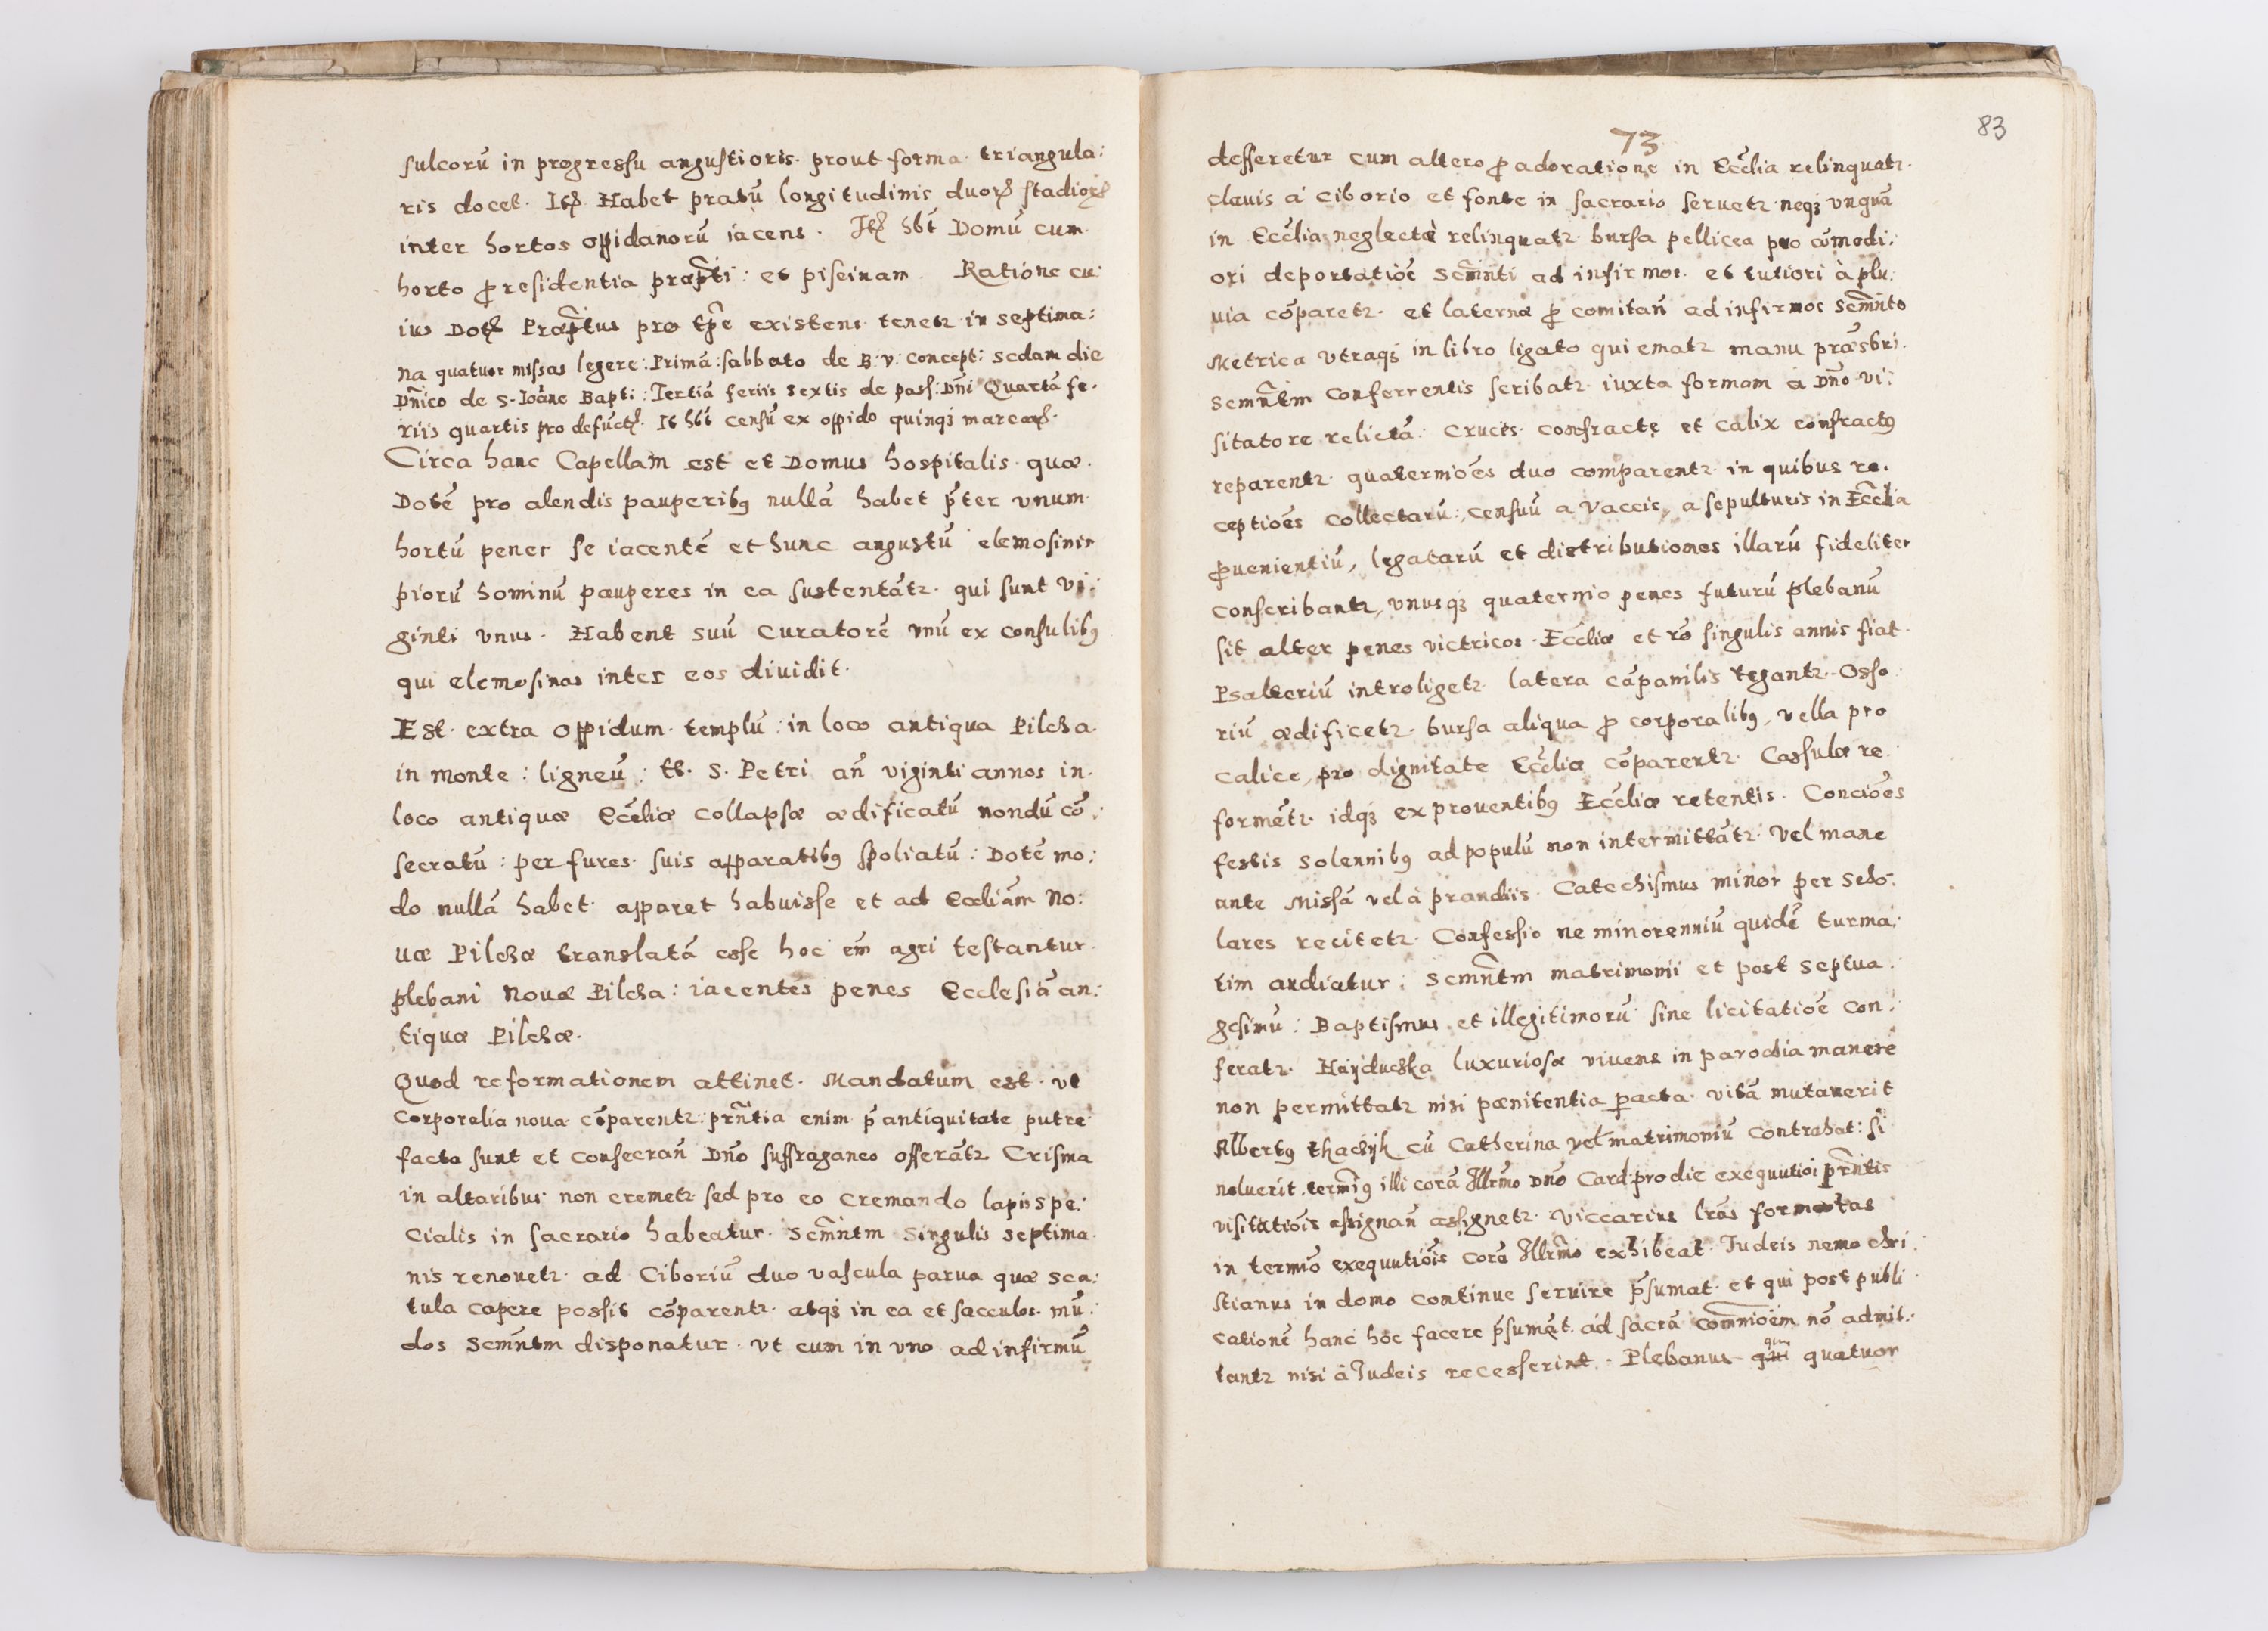 sulcorũ in progressu angustioris. prout forma. triangula:
ris docet. Itẽ. Habet pratũ longitudinis duorꝝ stadiorꝝ
inter hortos oppidanorũ iacens. Itẽ hbt Domũ cum
horto ꝓ residentia præpti: et piscinam. Ratione cu:
ius Dotꝭ Præptus pro tpre existens tenetr in septima:
na quatuor missas legere: Primã: sabbato de B: V: Concept: sedam die
Dñico de S. Joãne Bapti: Tertiã feriis sextis de pass: Dñi Quartã fe.
riis quartis pro defũctꝭ. It hbt censũ ex oppido quinqꝫ marcarꝝ.
Circa hanc Capellam est et Domus hospitalis. quæ.
Dotẽ pro alendis pauperibꝰ nullã habet p̃ter vnum.
hortũ penes se iacentẽ et hunc angustũ elemosinis
piorũ hominũ pauperes in ea sustentãtr. qui sunt vi:
ginti vnus. Habent suũ Curatorẽ vnũ ex consulibꝰ
qui elemosinas inter eos diuidit.
Est. extra oppidum. templũ: in loco antiqua Pilcza.
in monte: ligneũ: tt. S. Petri añ viginti annos in.
loco antiquæ Eccliæ collapsæ ædificatũ nondũ cõ:
secratũ: per fures. suis apparatibꝰ spoliatũ: Dotẽ mo:
do nullã habet. apparet habuisse et ad Eccliãm No:
uæ Pilczæ translatã esse hoc em̃ agri testantur.
plebani Nouæ Pilcza: iacentes penes Ecclesiã an:
tiquæ Pilczæ.
Quod reformationem attinet. Mandatum est. vt
Corporalia noua cõparentr: prñtia enim p̃ antiquitate putre
facta sunt et consecrañ Dño suffraganeo offerãtr Crisma
in altaribus. non cremetr sed pro eo cremando lapis spe:
cialis in sacrario habeatur. Scm̃ntm singulis septima.
nis renouetr. ad Ciboriũ duo vascula parua quæ sca:
tula capere possit cõparentr. atqꝫ in ea et sacculos. mũ:
dos Scm̃ntm disponatur. vt cum in vno ad infirmũ
83
73
defferetur cum altero ꝓ adoratione in Ecclia relinquatr.
clauis á ciborio et fonte in sacrario seruetr. neqꝫ vnquã
in Ecclia neglectè relinquatr. bursa pellicea pro cõmodi:
ori deportatiõe Scm̃nti ad infirmos. et tutiori à plu:
uia cõparetr. et laterna ꝓ comitañ ad infirmos Scm̃nto
Metrica vtraqꝫ in libro ligato qui ematr manu præsbri.
Scm̃ntm Conferrentis scribatr. iuxta formam a Dño Vi:
sitatore relictã. Cruces. confracte et calix confractꝰ
reparentr. quaterniões duo comparentr. in quibus re.
ceptiões collectarũ, censuũ a Vaccis, a sepulturis in Ecclia
ꝓuenientiũ, legatarũ et distributiones illarũ fideliter
conscribantr, vnusqꝫ quaternio penes futurũ plebanũ
sit alter penes victricos. Eccliæ et rõ singulis annis fiat.
Psalteriũ introligetr. latera cãpanilis tegantr. Osso
riũ ædificetr. bursa aliqua ꝓ corporalibꝰ, vella pro
calice, pro dignitate Eccliæ cõparentr. Cassulæ re
formẽtr. idqꝫ ex prouentibꝰ Eccliæ retentis. Conciões
festis solennibꝰ ad populũ non intermittãtr. vel mane
ante Missã vel à prandiis. Catechismus minor per scho:
lares recitetr. Confessio ne minorenniũ quidẽ turma:
tim audiatur: Scm̃ntm matrimonii et post septua.
gesimũ: Baptismus et illegitimorũ sine licitatiõe con:
feratr. Hayduczka luxuriosæ viuens in parochia manere
non permittatr nisi pœnitentia ꝑacta. vitã mutauerit
Albertꝰ thaczyk cũ Catherina vel matrimoniũ contrahat: si
noluerit. termĩꝰ illi corã Illrm̃o Dño Card: pro die exequutiõi prñtis
visitatiõis assignañ assignetr. Viccarius lrãs formatas
in termĩo exequutiõis corã Illrm̃o exhibeat. Judeis nemo chri:
stianus in domo continue seruire p̃sumat. et qui post publi
cationẽ hanc hoc facere p̃sumãt. ad sacrã comnioẽm nõ admit:
tantr nisi à Judeis recesserint. Plebanus qui quatuor